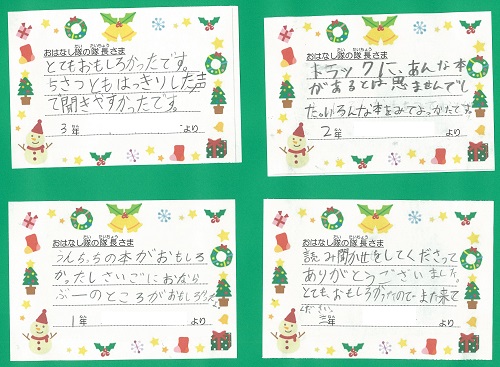 おはなし隊の隊長さま
とてもおもしろかったです。
ちさつともはっきりした声
で聞きやすかったです。
3年 より
おはなし隊の隊長さま
トラックに、あんな本
があるとは思ませんでし
た。いろんな本をみてよかったです。
2年 より
おはなし隊の隊長さま
うんちっちの本がおもしろ
かったしさいごにおなら
ぶーのところがおもしろかった
1年 より
おはなし隊の隊長さま
読み聞かせをしてくださって
ありがとうございました。
とても、おもしろかったので、また来て
ください。
三年 より